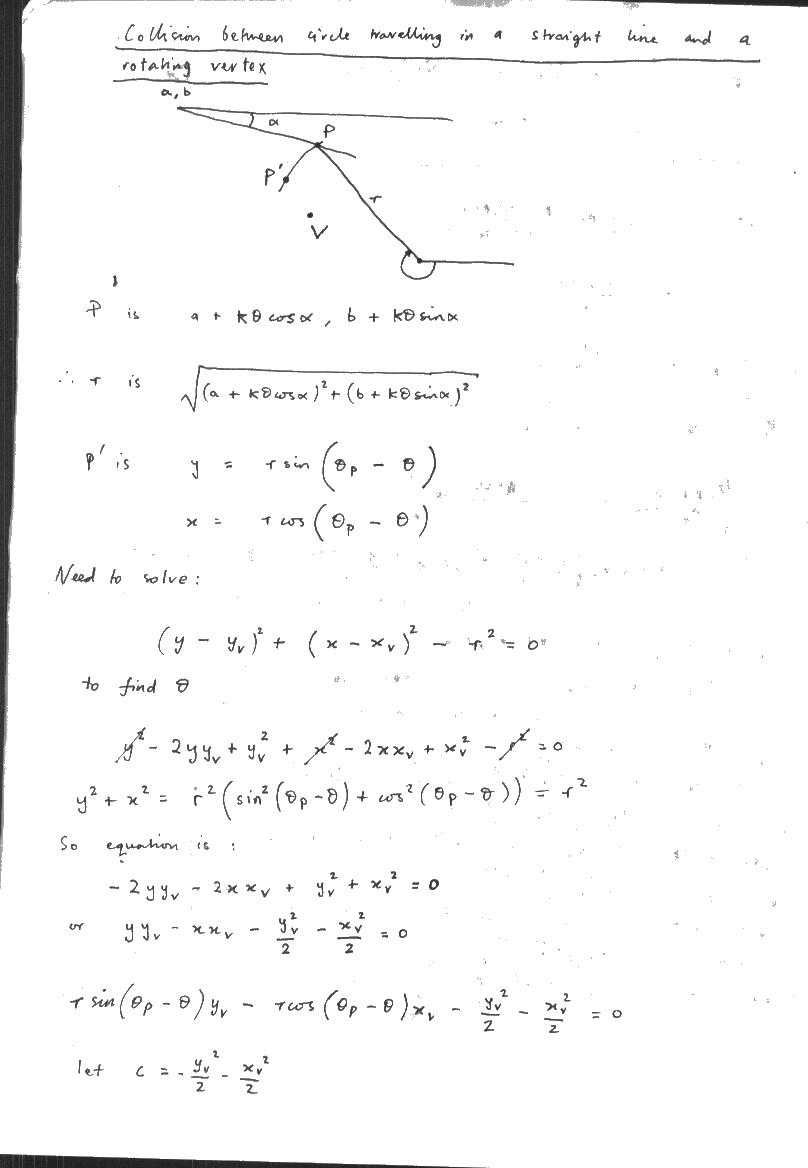 Collision between circle travelling in a straight line and a
rotating vertex
a, b
α
P
P'
r
V
P is a + kθcosα, b + kθsinα
∴ r is √((a + kθcosα)² + (b + kθsinα)²)
P' is y = r sin(θp - θ)
x = r cos(θp - θ)
Need to solve:
(y - yv)² + (x - xv)² - r² = 0
to find θ
y² - 2yyv + yv² + x² - 2xxv + xv² - r² = 0
y² + x² = r²(sin²(θp - θ) + cos²(θp - θ)) = r²
So equation is :
- 2yyv - 2xxv + yv² + xv² = 0
or yyv - xxv - yv²/2 - xv²/2 = 0
r sin(θp - θ)yv - r cos(θp - θ)xv - yv²/2 - xv²/2 = 0
let c = - yv²/2 - xv²/2